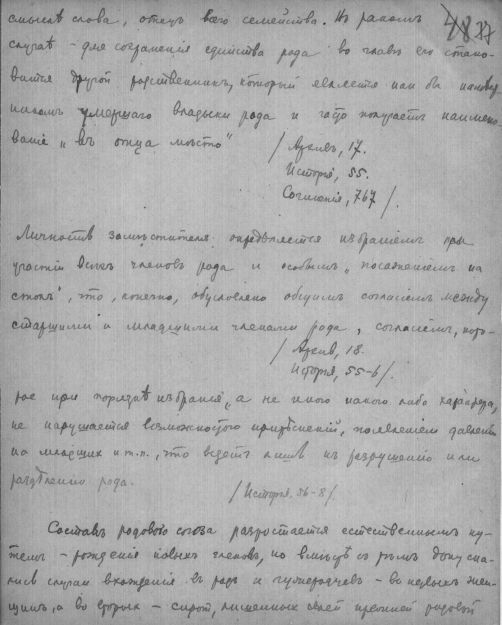 смыслѣ слова, отецъ всего семейства. Въ раннемъ
случаѣ – для сохраненія единства рода во главѣ его стано-
вится другой родственникъ, который является какъ бы
умершаго владыки рода и часто получаетъ наимено-
ваніе „въ отца мѣсто"
/Архивъ, 17.
Исторія, 55.
Сочиненія, 767/.
Личность замѣстителя опредѣляется избраніемъ при
участіи всѣхъ членовъ рода и особымъ „посаженіемъ на
столъ", что, конечно, обусловлено общимъ согласіемъ между
старшими и младшими членами рода, согласіемъ, кото-
/Архив, 18.
Исторія, 55-6/.
рое при порядкѣ избранія, а не иного какого либо характера,
не нарушается возможностью притѣсненій, появленіемъ давленія
на младших и т.п., что ведетъ лишь къ разрушенію или
раздѣленію рода.
/Исторія, 56-8/.
Составъ родового союза разростается естественнымъ пу-
темъ – рожденія новыхъ членовъ, но вмѣстѣ съ тѣмъ допуска-
лись случаи вхожденія въ родъ и чужеродцевъ – во первыхъ жен-
щинъ, а во вторыхъ – сиротъ, лишенныхъ своей прежней родовой